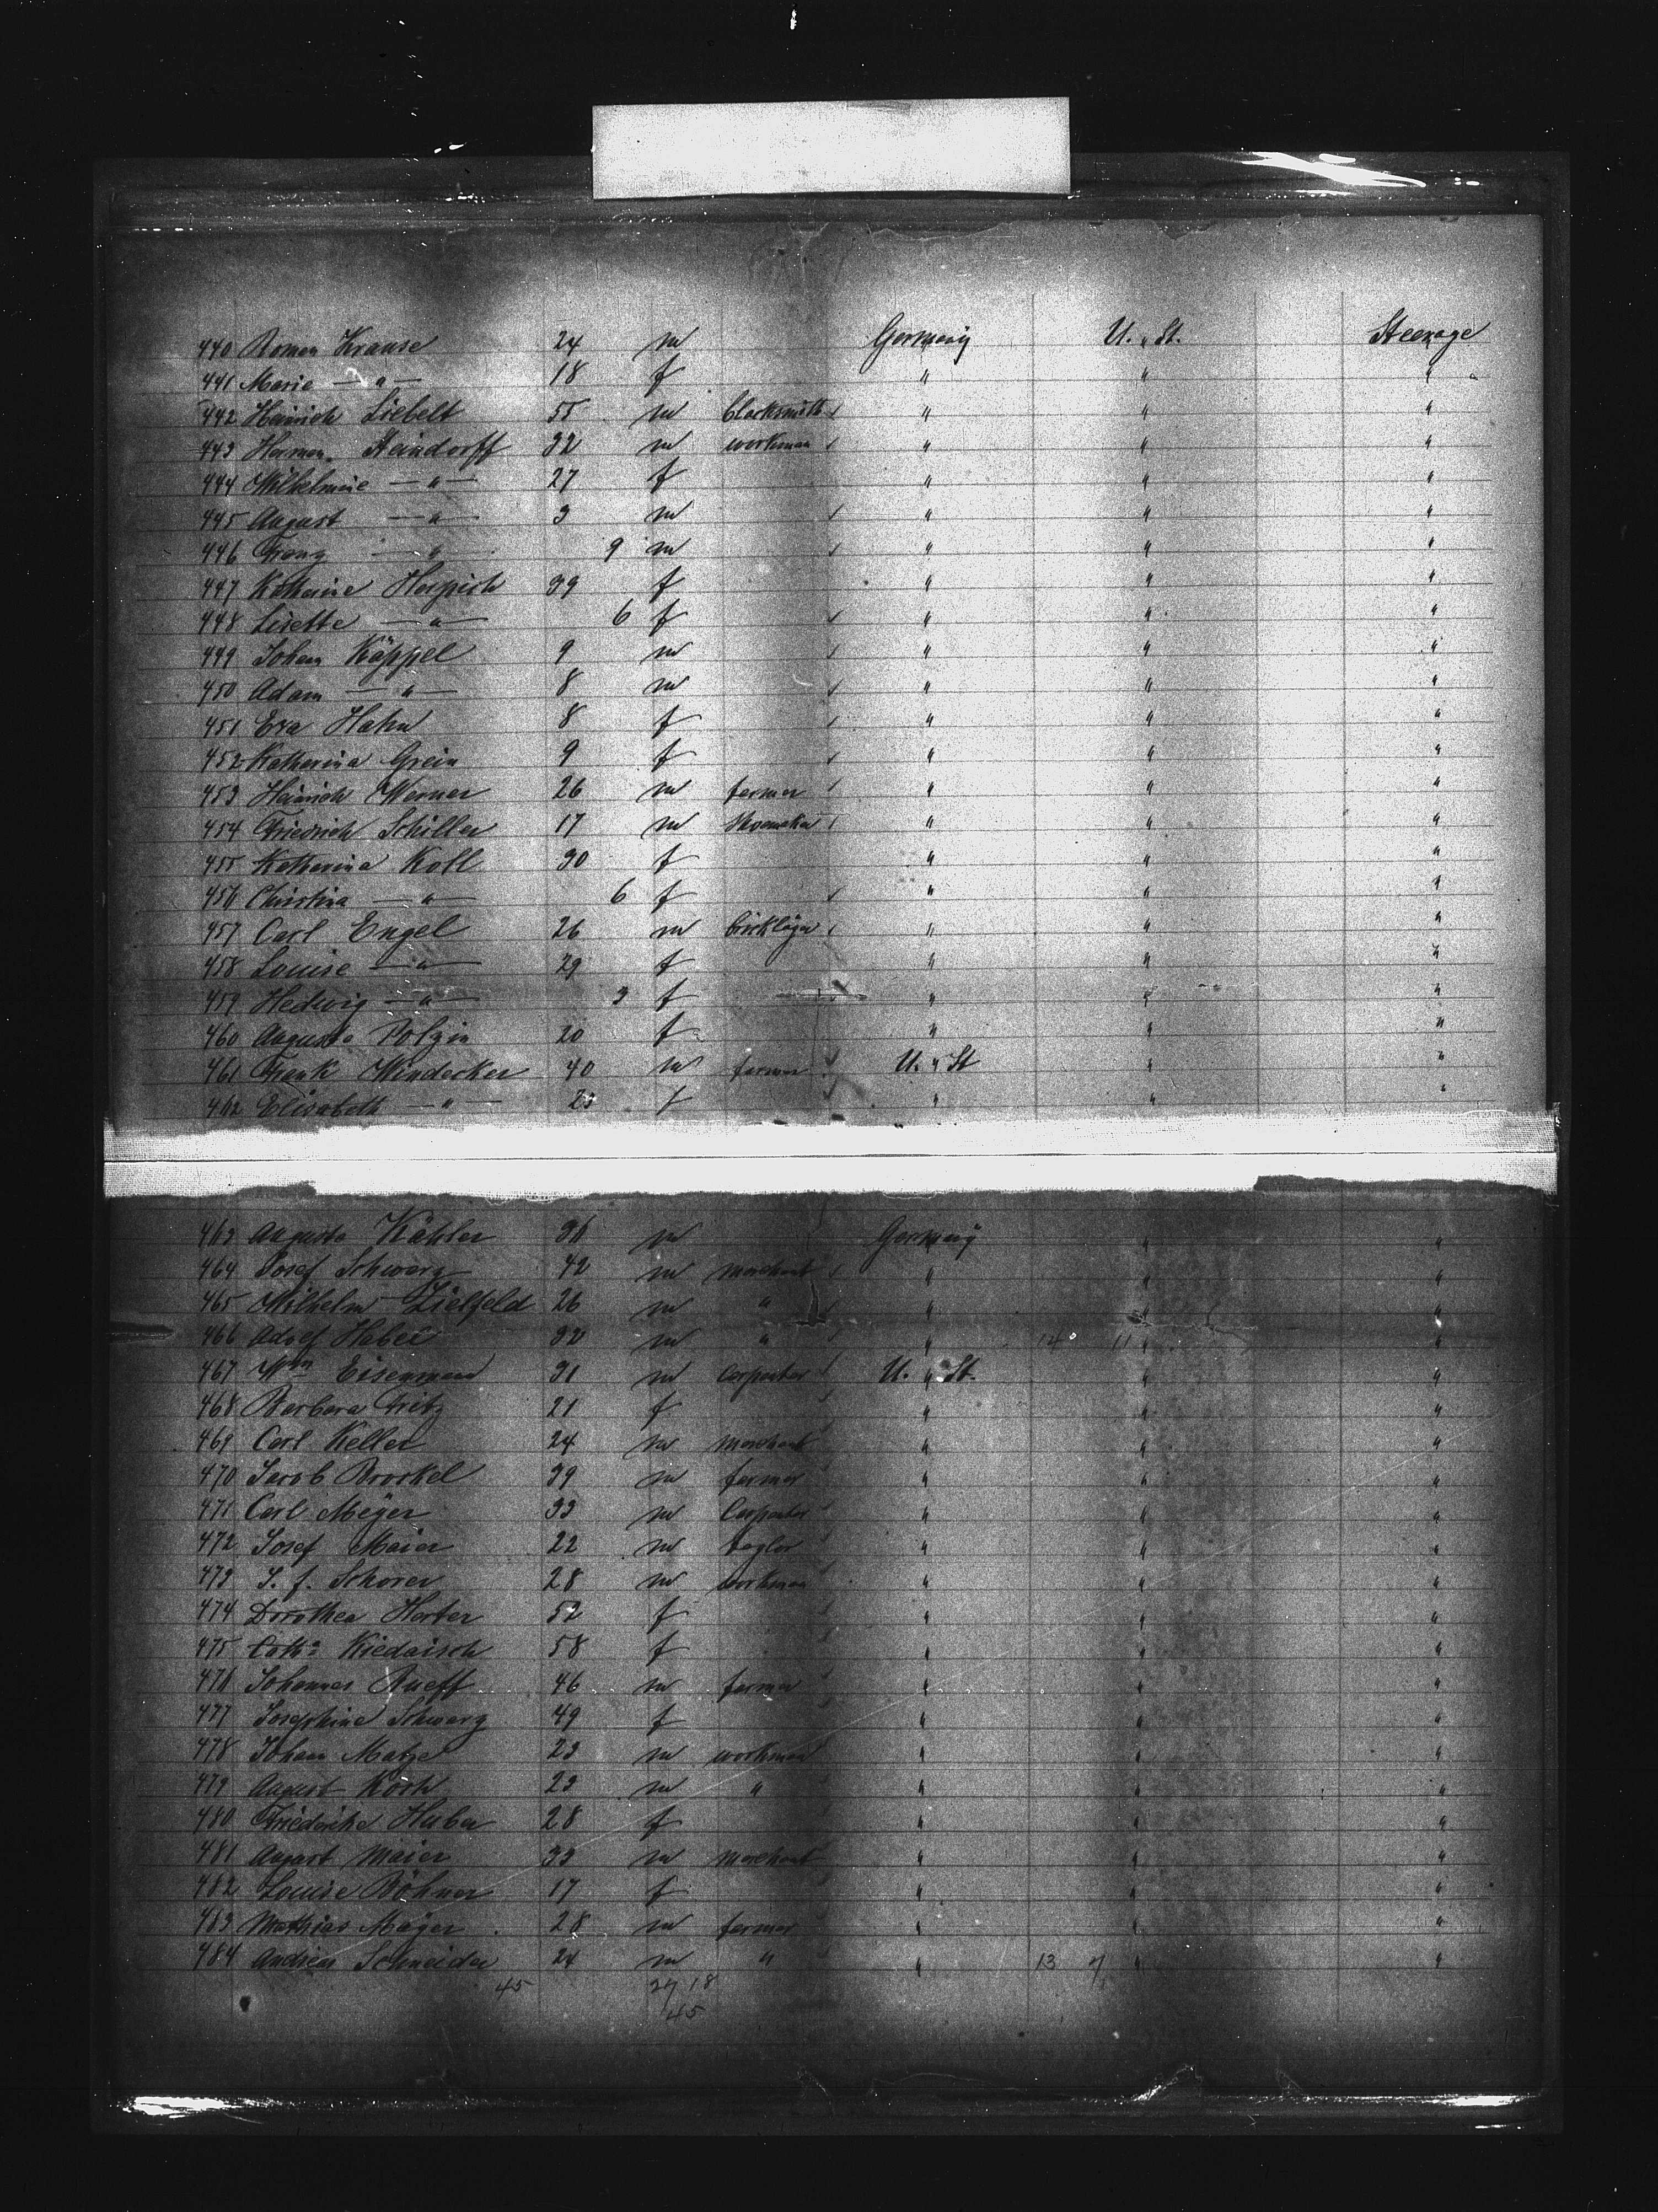 440 Roman Krause 24 m Germany U. St. Steerage
441 Marie — " — 18 f " " "
442 Heinrich Liebelt 55 m blacksmith " " "
443 Herman Heindorff 32 m workman " " "
444 Wilhelmine — " — 27 f " " "
445 August — " — 3 m " " "
446 Franz — " — 9 m " " "
447 Katherine Herpich 39 f " " "
448 Lisette — " — 6 f " " "
449 Johan Käppel 9 m " " "
450 Adam — " — 8 m " " "
451 Eva Hahn 8 f " " "
452 Katherina Grein 9 f " " "
453 Heinrich Werner 26 m farmer " " "
454 Friedrich Schiller 17 m Shoemaker " " "
455 Katherina Koll 30 f " " "
456 Christina — " — 6 f " " "
457 Carl Engel 26 m bricklayer " " "
458 Louise — " — 29 f " " "
459 Hedwig — " — 3 f " " "
460 Auguste Polzin 20 f " " "
461 Frank Windecker 40 m farmer U. St " "
462 Elisabeth — " — 23 f " " "
463 Auguste Kähler 36 m Germany " "
464 Josef Schwarz 42 m merchant " " "
465 Wilhelm Zielfeld 26 m " " " "
466 Adolf Habel 32 m " " 14 11 " "
467 Wm Eisenmann 31 m carpenter U. St. " "
468 Barbara Fritz 21 f " " "
469 Carl Keller 24 m merchant " " "
470 Jacob Brockel 39 m farmer " " "
471 Carl Meÿer 33 m Carpenter " " "
472 Josef Maier 22 m taylor " " "
473 J. f. Schorer 28 m workman " " "
474 Dorothea Herter 52 f " " "
475 Cath: Kiedaisch 58 f " " "
476 Johannes Rueff 46 m farmer " " "
477 Josephine Schwarz 49 f " " "
478 Johan Matze 23 m workman " " "
479 August Koch 23 m " " " "
480 Friederike Huber 28 f " " "
481 August Maier 33 m merchant " " "
482 Louise Böhner 17 f " " "
483 Mathias Mayer 28 m farmer " " "
484 Andreas Schneider 24 m " " 13 7 " "
45 27 18
45